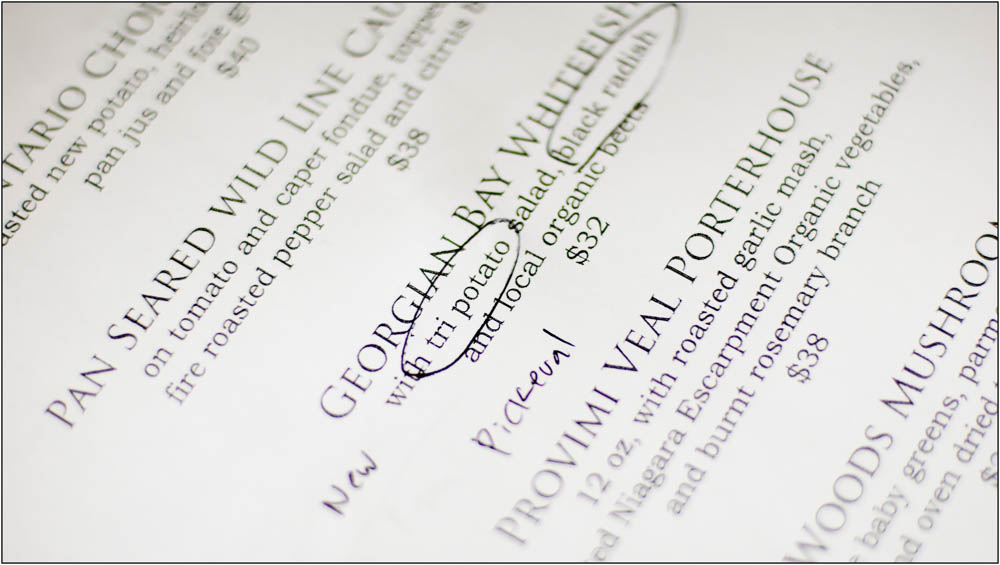 NTARIO CHOR
asted new potato, heirlo
pan jus and foie gr
$40
PAN SEARED WILD LINE CAU
on tomato and caper fondue, topped
fire roasted pepper salad and citrus b
$38
GEORGIAN BAY WHITEFISH
with tri potato salad, black radish
and local organic beets
$32
New
Pickeral
PROVIMI VEAL PORTERHOUSE
12 oz, with roasted garlic mash,
ed Niagara Escarpment Organic vegetables,
and burnt rosemary branch
$38
WOODS MUSHROO
baby greens, parm
nd oven dried